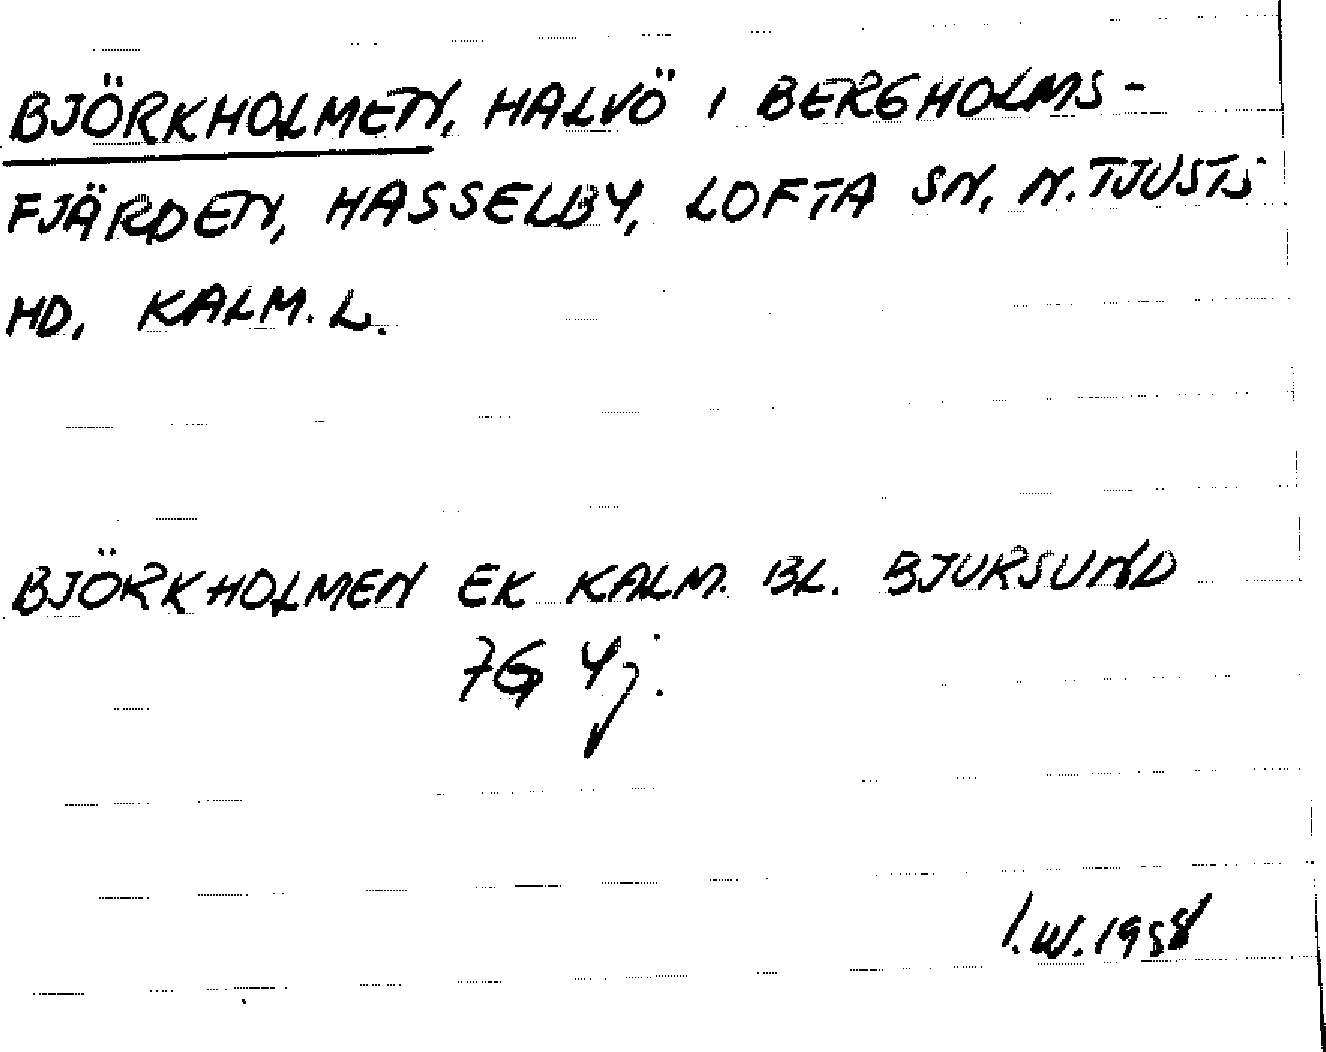 BJÖRKHOLMEN, HALVÖ I BERGHOLMS-
FJÄRDEN, HASSELBY, LOFTA SN, N. TJUSTS
HD, KALM. L.
BJÖRKHOLMEN EK KALM. BL. BJURSUND
7G 4j.
I.W. 1958